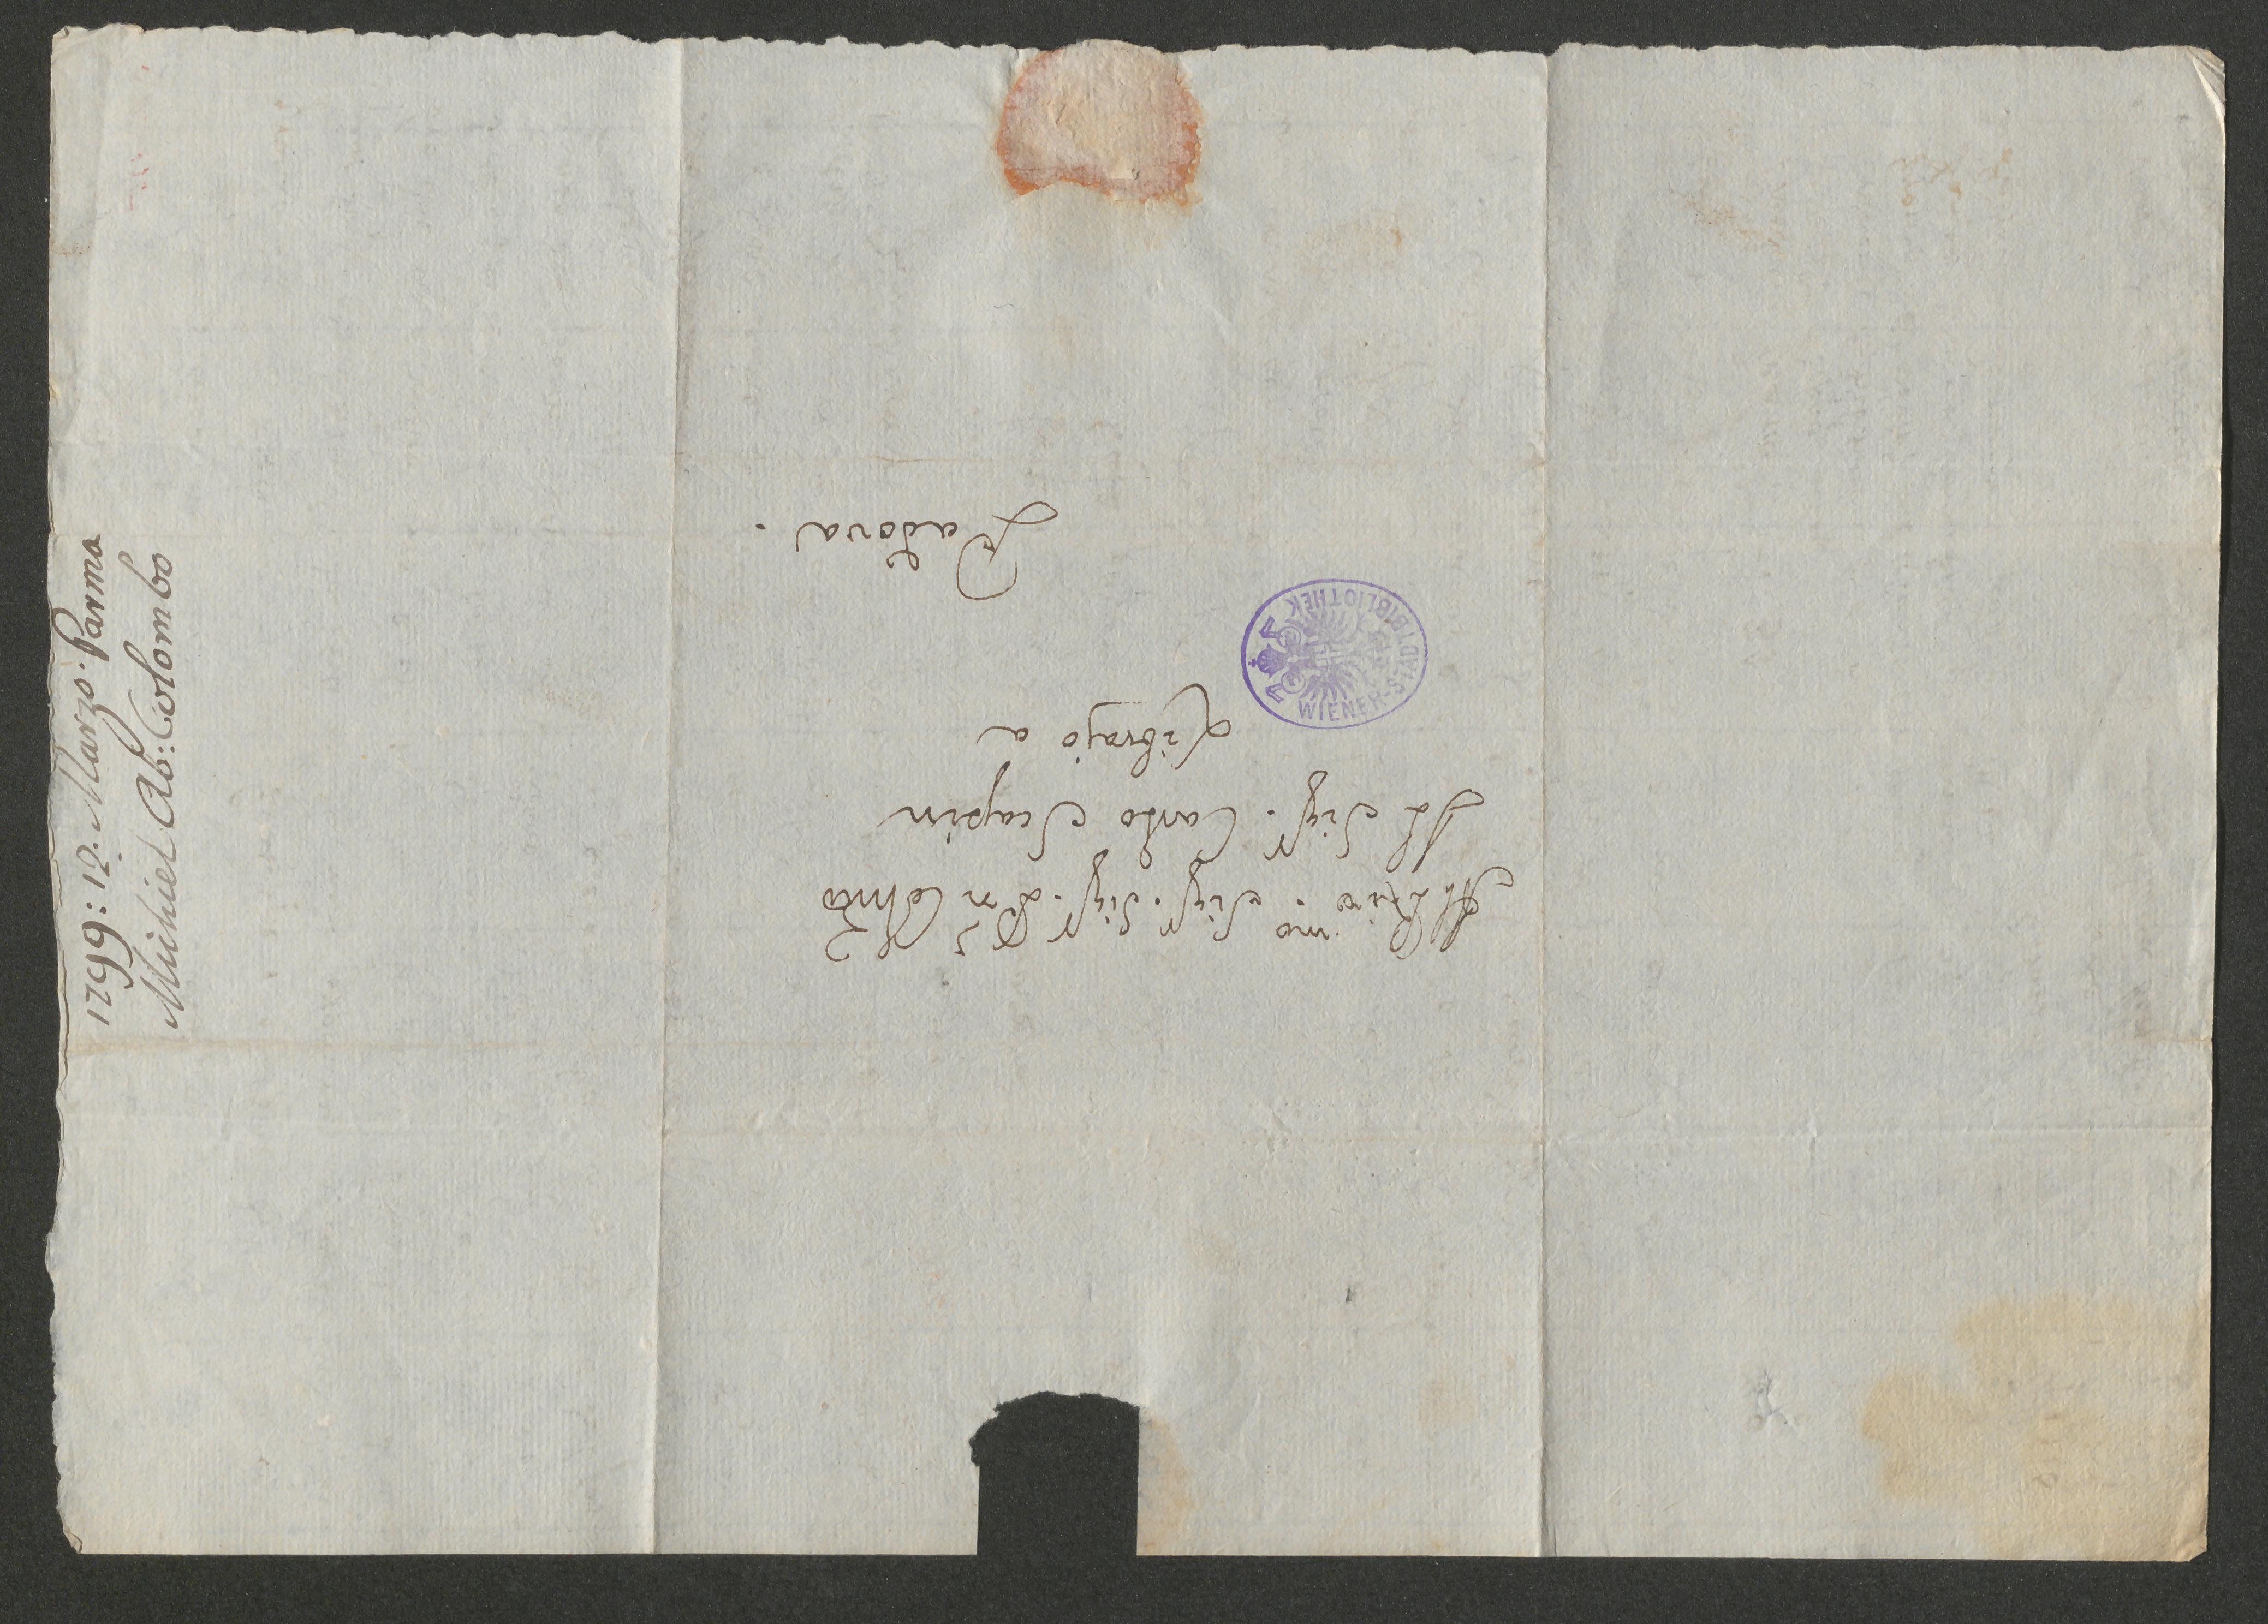 1799: 12. Marzo. Parma
Michiel Ab: Colombo
Al Sigr. Sigr. Pn Colmo
Il Sigr. Carlo Scapin
Librajo a
Padova.
WIENER-STADTBIBLIOTHEK